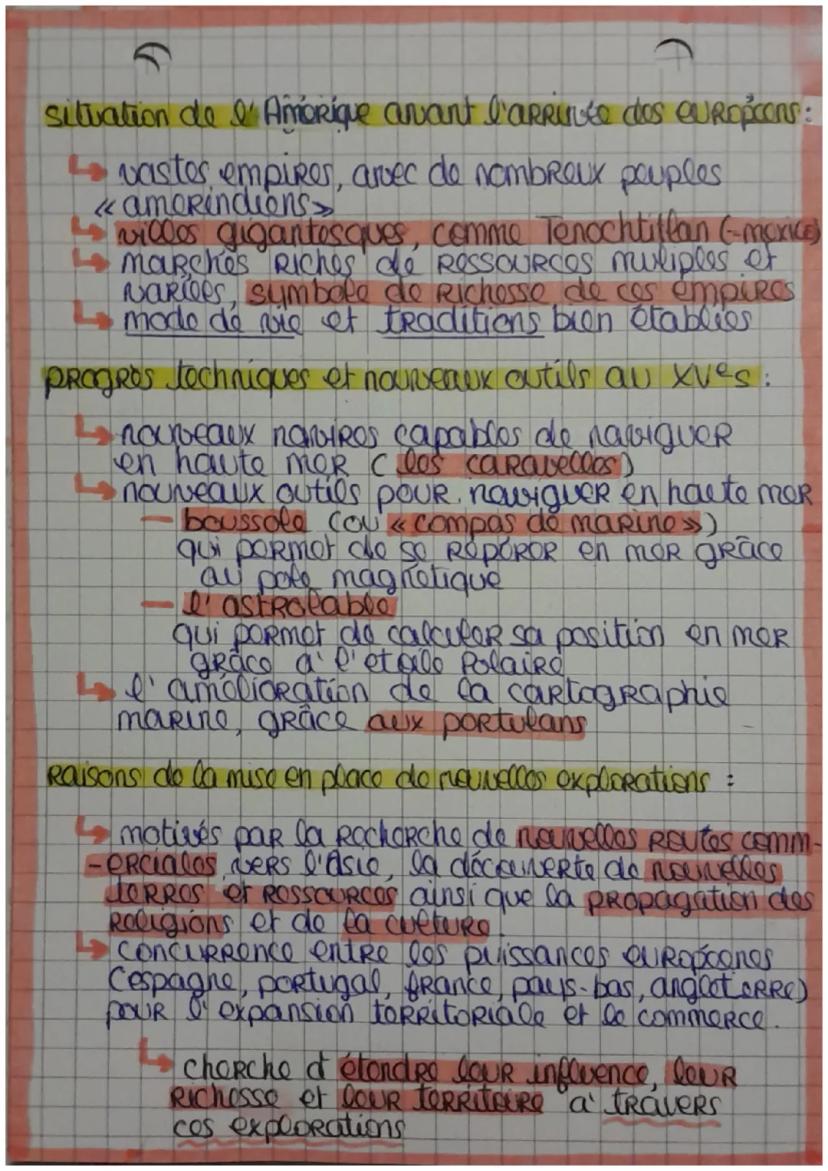 situation de l'Amérique avant l'arrivée des européens :
↳ vastes empires, avec de nombreux peuples
« amerindiens »
↳ villes gigantesques, comme Tenochtitlan (-mexico)
↳ marchés riches de ressources muliples et
variées, symbole de richesse de ces empires
↳ mode de vie et traditions bien établies
progrès techniques et nouveaux outils au XVes :
↳ nouveaux navires capables de naviguer
en haute mer ( les caravelles)
↳ nouveaux outils pour naviguer en haute mer
— boussole (ou « compas de marine »)
qui permet de se repérer en mer grâce
au pole magnétique
— l'astrolable
qui permet de calculer sa position en mer
grâce à l'etoile Polaire
↳ l'amélioration de la cartographie
marine, grâce aux portulans
raisons de la mise en place de nouvelles explorations :
↳ motivés par la recherche de nouvelles routes comm-
-erciales vers l'Asie, la découverte de nouvelles
terres et ressources ainsi que la propagation des
religions et de la culture.
↳ concurrence entre les puissances européenes
(espagne, portugal, france, pays-bas, angleterre)
pour l'expansion territoriale et le commerce.
↳ cherche d'étendre leur influence, leur
richesse et leur territoire à travers
ces explorations